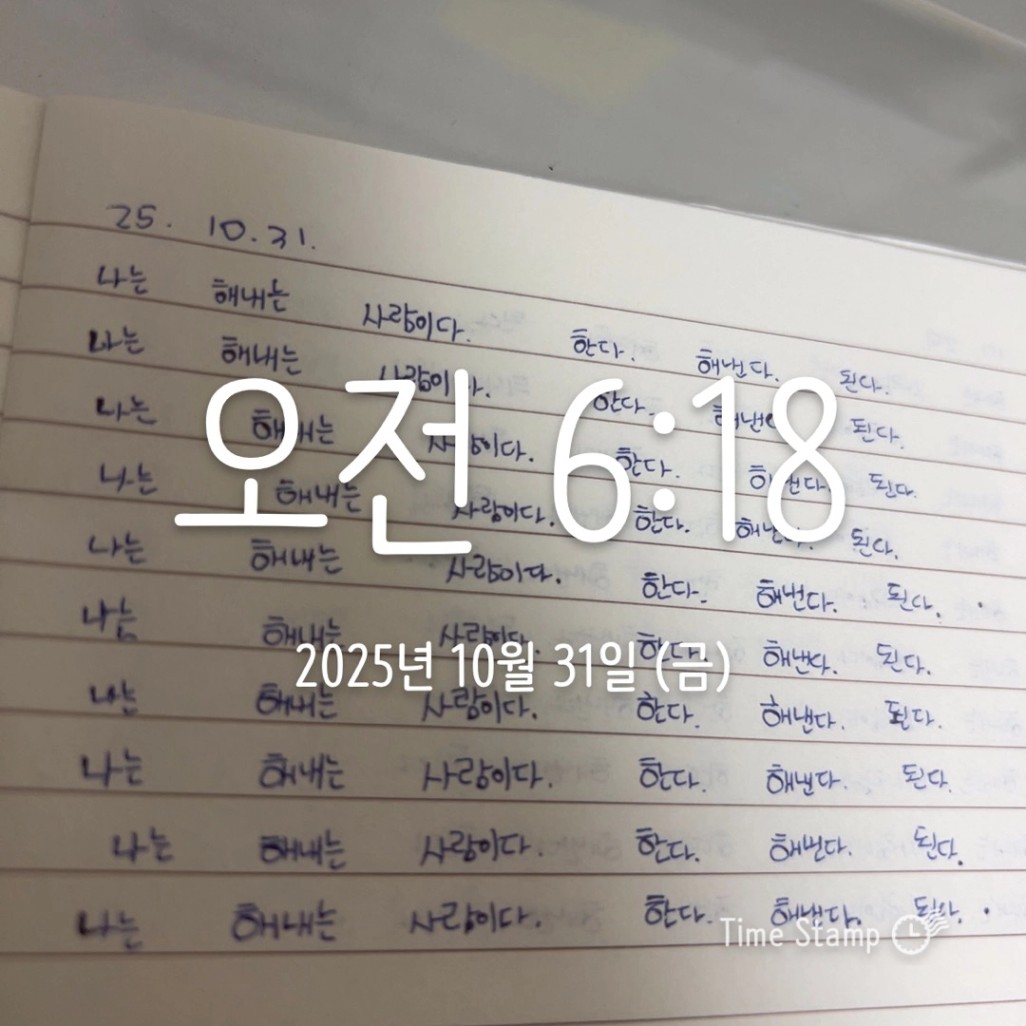 25. 10. 31.
나는 해내는 사람이다. 한다. 해낸다. 된다.
나는 해내는 사람이다. 한다. 해낸다 된다.
나는 해내는 사람이다. 한다. 해낸다. 된다.
나는 해내는 사람이다. 한다. 해낸다. 된다.
나는 해내는 사람이다. 한다. 해낸다. 된다.
나는 해내는 사람이다. 한다. 해낸다. 된다.
나는 해내는 사람이다. 한다. 해낸다. 된다.
나는 해내는 사람이다. 한다. 해낸다. 된다.
나는 해내는 사람이다. 한다. 해낸다. 된다.
나는 해내는 사람이다. 한다. 해낸다. 된다.
오전 6:18
2025년 10월 31일 (금)
Time Stamp